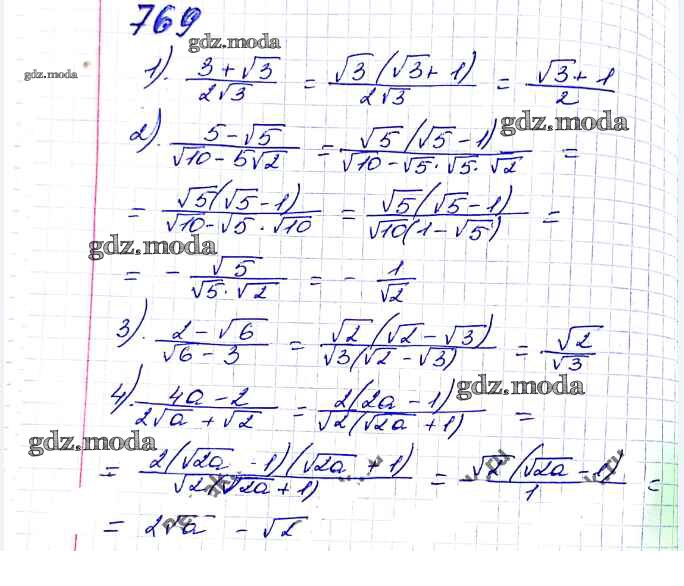 769
gdz.moda
gdz.moda
1). (3 + √3)/(2√3) = (√3(√3 + 1))/(2√3) = (√3 + 1)/2
gdz.moda
2). (5 − √5)/(√10 − 5√2) = (√5(√5 − 1))/(√10 − √5 · √5 · √2) =
= (√5(√5 − 1))/(√10 − √5 · √10) = (√5(√5 − 1))/(√10(1 − √5)) =
gdz.moda
= − √5/(√5 · √2) = − 1/√2
3). (2 − √6)/(√6 − 3) = (√2(√2 − √3))/(√3(√2 − √3)) = √2/√3
gdz.moda
4). (4a − 2)/(2√a + √2) = (2(2a − 1))/(√2(√2a + 1)) =
gdz.moda
= (2(√2a − 1)(√2a + 1))/(√2 (√2a + 1)) = (√2(√2a − 1))/1 =
= 2√a − √2